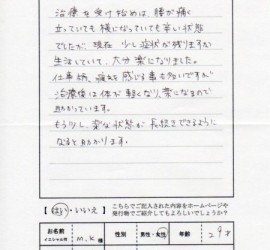 治療を受け始めは、腰が痛く
立っていても横になっていても辛い状態
でしたが、現在 少し症状が残りますが
生活していて、大分楽になりました。
仕事柄、疲れを感じる事も多いですが
治療後は体が軽くなり、楽になるので
助かっています。
もう少し、楽な状態が長続きできるように
なると助かります。
【はい・いいえ】
こちらでご記入された内容をホームページや
発行物でご紹介してもよろしいでしょうか?
お名前
イニシャル可
M.K 様
性別
男性・女性
年齢
29才